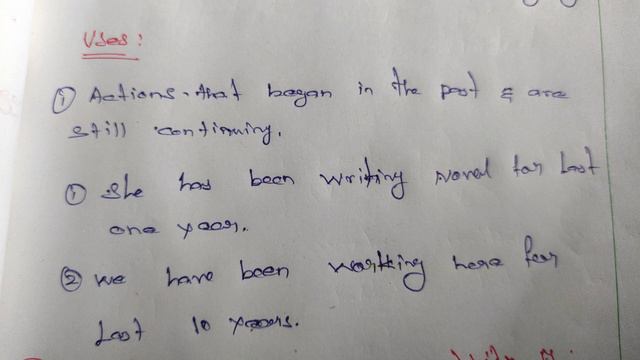 Uses:
① Actions that began in the past & are
still continuing.
① She has been writing novel for last
one year.
② We have been working here for
last 10 years.